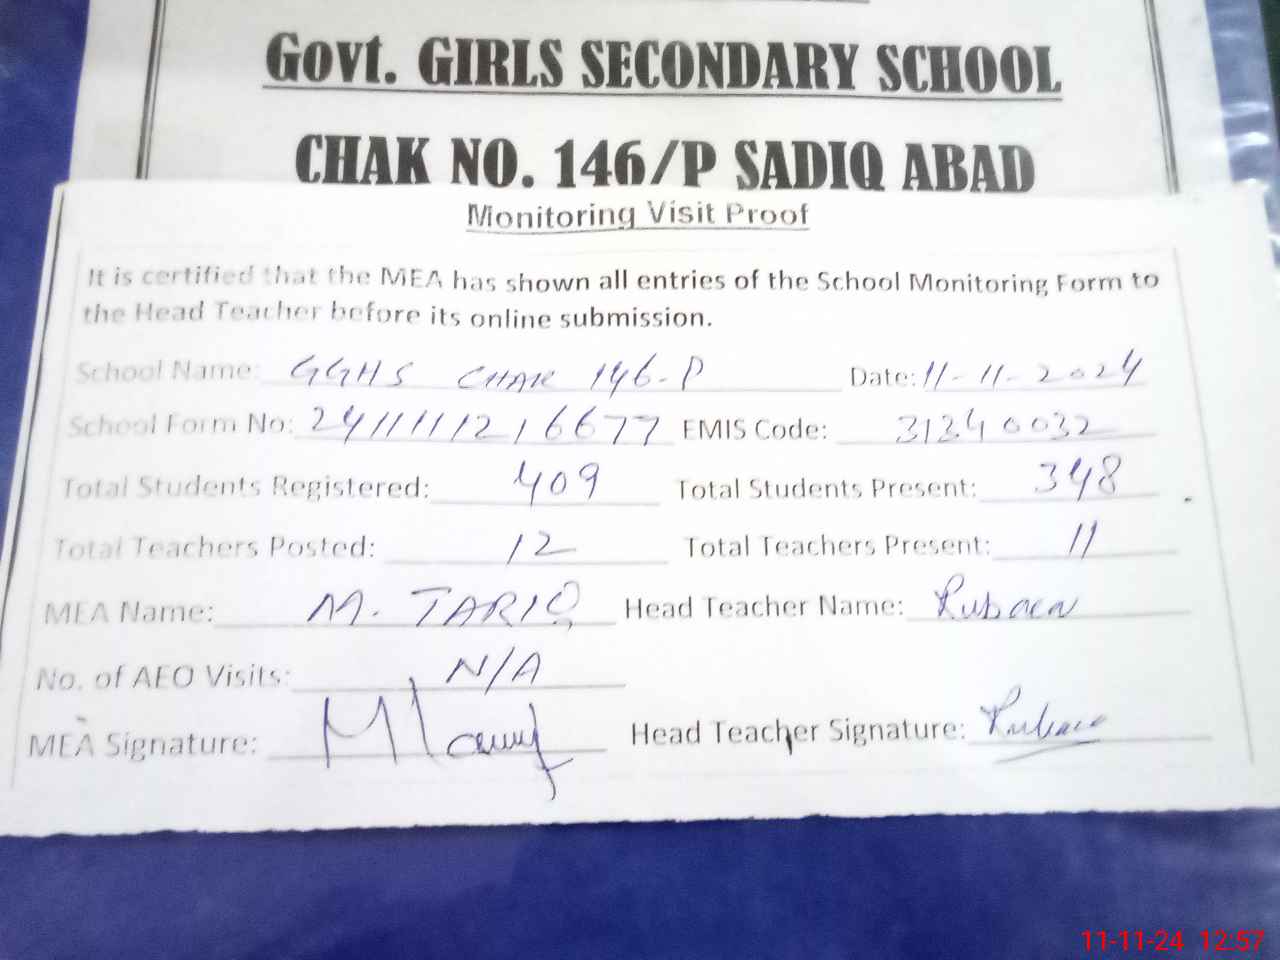 Govt. GIRLS SECONDARY SCHOOL
CHAK NO. 146/P SADIQ ABAD
Monitoring Visit Proof
It is certified that the MEA has shown all entries of the School Monitoring Form to
the Head Teacher before its online submission.
School Name: GGHS CHAK 146-P Date: 11-11-2024
School Form No: 2411111216677 EMIS Code: 31340032
Total Students Registered: 409 Total Students Present: 348
Total Teachers Posted: 12 Total Teachers Present: 11
MEA Name: M. TARIQ Head Teacher Name:
No. of AEO Visits: N/A
MEA Signature: Head Teacher Signature:
11-11-24 12:57